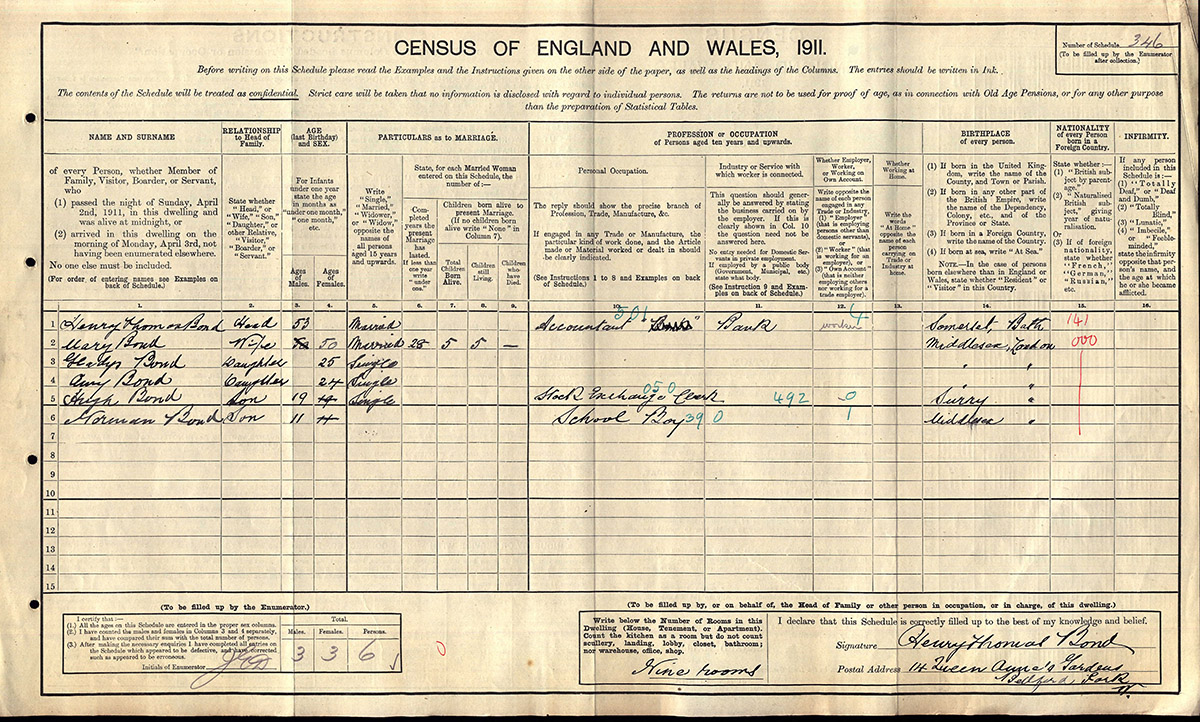 CENSUS OF ENGLAND AND WALES, 1911.
Number of Schedule 346
(To be filled up by the Enumerator
after collection.)
Before writing on this Schedule please read the Examples and the Instructions given on the other side of the paper, as well as the headings of the Columns. The entries should be written in Ink.
The contents of the Schedule will be treated as confidential. Strict care will be taken that no information is disclosed with regard to individual persons. The returns are not to be used for proof of age, as in connection with Old Age Pensions, or for any other purpose
than the preparation of Statistical Tables.
NAME AND SURNAME
of every Person, whether Member of
Family, Visitor, Boarder, or Servant,
who
(1) passed the night of Sunday, April
2nd, 1911, in this dwelling and
was alive at midnight, or
(2) arrived in this dwelling on the
morning of Monday, April 3rd, not
having been enumerated elsewhere.
No one else must be included.
(For order of entering names see Examples on
back of Schedule.)
RELATIONSHIP
to Head of
Family.
State whether
"Head," or
"Wife," "Son,"
"Daughter," or
other Relative,
"Visitor,"
"Boarder," or
"Servant."
AGE
(last Birthday)
and SEX.
For Infants
under one year
state the age
in months as
"under one month,"
"one month,"
etc.
Ages
of
Males.
Ages
of
Females.
PARTICULARS as to MARRIAGE.
Write
"Single,"
"Married,"
"Widower,"
or "Widow,"
opposite the
names of
all persons
aged 15 years
and upwards.
State, for each Married Woman
entered on this Schedule, the
number of:—
Completed
years the
present
Marriage
has
lasted.
If less than
one year
write
"under
one."
Children born alive to
present Marriage.
(If no children born
alive write "None" in
Column 7).
Total
Children
Born
Alive.
Children
still
Living.
Children
who
have
Died.
PROFESSION or OCCUPATION
of Persons aged ten years and upwards.
Personal Occupation.
The reply should show the precise branch of
Profession, Trade, Manufacture, &c.
If engaged in any Trade or Manufacture, the
particular kind of work done, and the Article
made or Material worked or dealt in should
be clearly indicated.
(See Instructions 1 to 8 and Examples on back
of Schedule.)
Industry or Service with
which worker is connected.
This question should gener-
ally be answered by stating
the business carried on by
the employer. If this is
clearly shown in Col. 10
the question need not be
answered here.
No entry needed for Domestic Ser-
vants in private employment.
If employed by a public body
(Government, Municipal, etc.)
state what body.
(See Instruction 9 and Exam-
ples on back of Schedule.)
Whether Employer,
Worker,
or Working on
Own Account.
Write opposite the
name of each person
engaged in any
Trade or Industry,
(1) "Employer"
(that is employing
persons other than
domestic servants),
or
(2) "Worker" (that
is working for an
employer), or
(3) "Own Account"
(that is neither
employing others
nor working for a
trade employer).
Whether
Working at
Home.
Write the
words
"At Home"
opposite the
name of each
person
carrying on
Trade or
Industry at
home.
BIRTHPLACE
of every person.
(1) If born in the United King-
dom, write the name of the
County, and Town or Parish.
(2) If born in any other part of
the British Empire, write
the name of the Dependency,
Colony, etc., and of the
Province or State.
(3) If born in a Foreign Country,
write the name of the Country.
(4) If born at sea, write "At Sea."
NOTE.—In the case of persons
born elsewhere than in England or
Wales, state whether "Resident" or
"Visitor" in this Country.
NATIONALITY
of every Person
born in a
Foreign Country.
State whether:—
(1) "British
subject by
parent-
age."
(2) "Naturalised
British
sub-
ject," giving
year of natu-
ralisation.
Or
(3) If of foreign
nationality,
state whether
"French,"
"German,"
"Russian,"
etc.
INFIRMITY.
If any person
included in this
Schedule is:—
(1) "Totally
Deaf," or "Deaf
and Dumb,"
(2) "Totally
Blind,"
(3) "Lunatic,"
(4) "Imbecile,"
or "Feeble-
minded,"
state the infirmity
opposite that per-
son's name, and
the age at which
he or she became
afflicted.
1. 2. 3. 4. 5. 6. 7. 8. 9. 10. 11. 12. 13. 14. 15. 16.
1 Henry Thomas Bond Head 53 Married Accountant Bank Bank worker Somerset, Bath
501 4 141
2 Mary Bond Wife 50 Married 28 5 5 — Middlesex, London 000
3 Gladys Bond Daughter 25 Single " "
4 Amy Bond Daughter 24 Single " "
5 Hugh Bond Son 19 19 Single Stock Exchange Clerk Surry "
050 492 0
6 Norman Bond Son 11 11 School Boy 390 1 Middlesex "
7
8
9
10
11
12
13
14
15
(To be filled up by the Enumerator.)
I certify that:—
(1.) All the ages on this Schedule are entered in the proper sex columns.
(2.) I have counted the males and females in Columns 3 and 4 separately,
and have compared their sum with the total number of persons.
(3.) After making the necessary enquiries I have completed all entries on
the Schedule which appeared to be defective, and have corrected
such as appeared to be erroneous.
Initials of Enumerator
Total.
Males. Females. Persons.
3 3 6
0
(To be filled up by, or on behalf of, the Head of Family or other person in occupation, or in charge, of this dwelling.)
Write below the Number of Rooms in this
Dwelling (House, Tenement, or Apartment).
Count the kitchen as a room but do not count
scullery, landing, lobby, closet, bathroom;
nor warehouse, office, shop.
Nine rooms
I declare that this Schedule is correctly filled up to the best of my knowledge and belief.
Signature Henry Thomas Bond
Postal Address 14 Queen Anne's Gardens
Bedford Park
W.